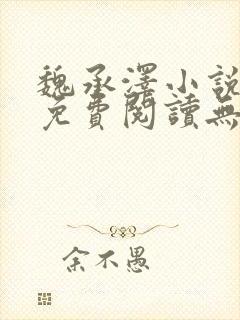 魏承澤小說
免費閱讀無
余不愚